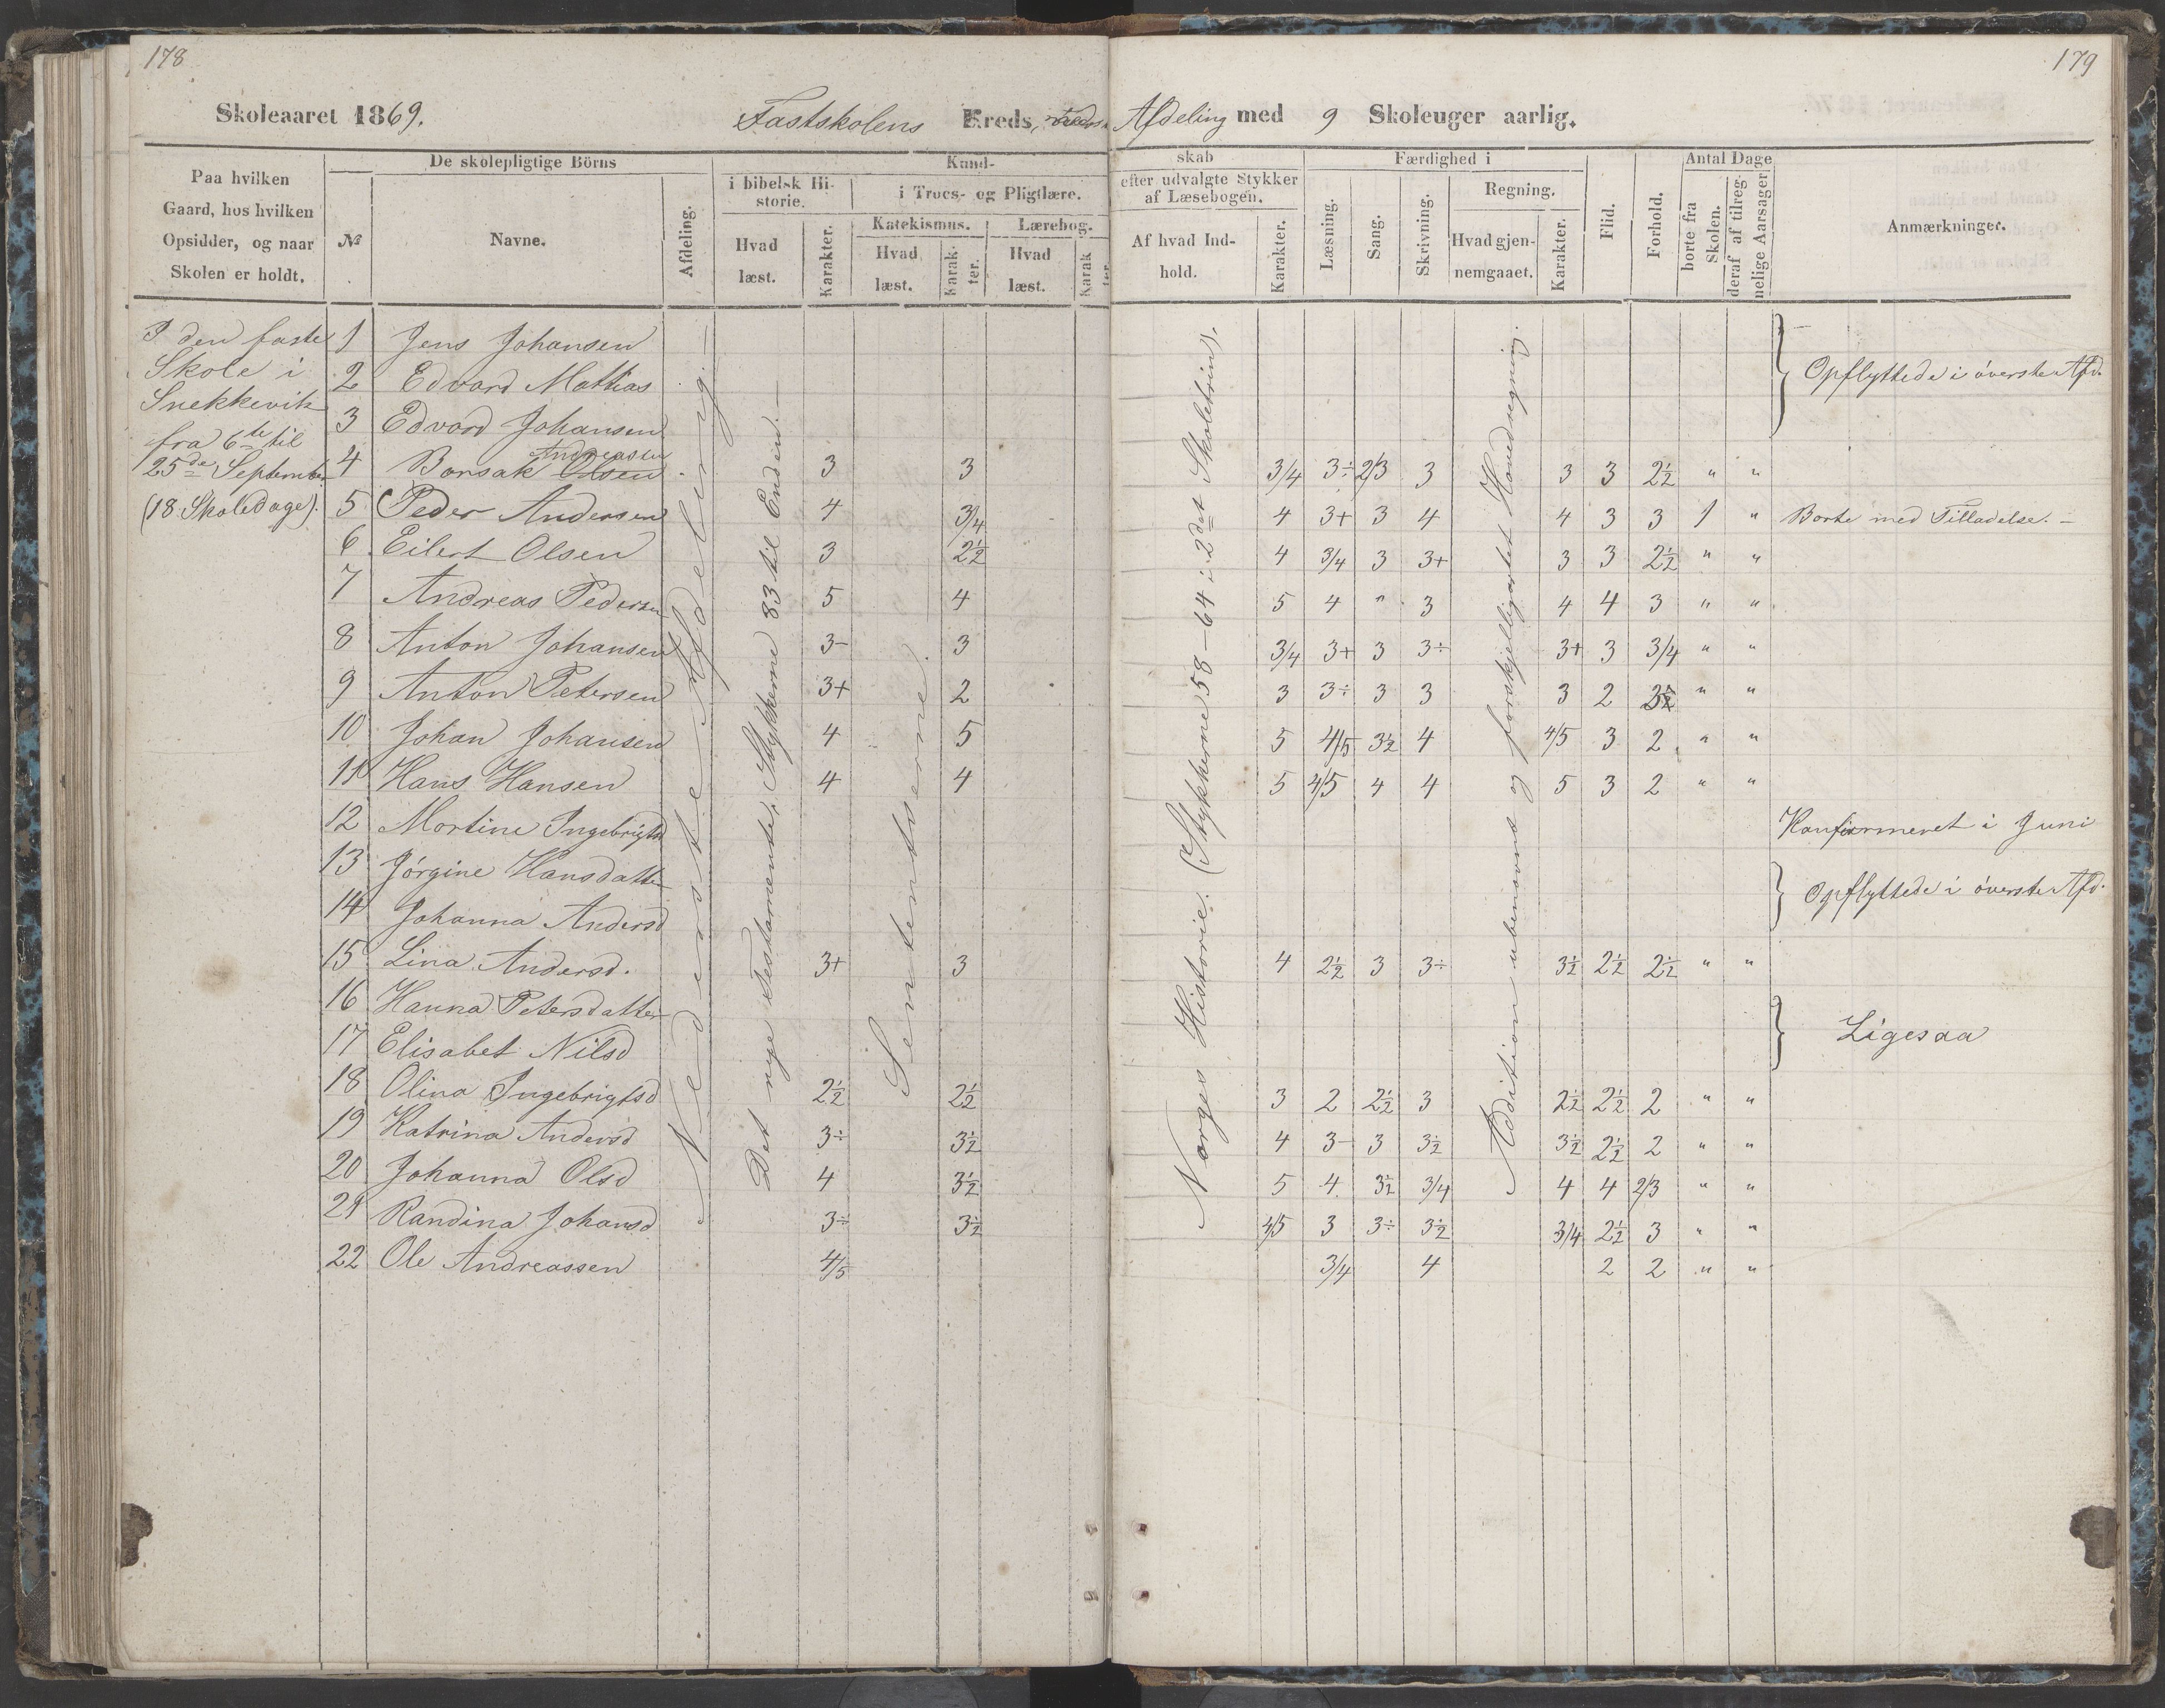 178
179
Skoleaaret 1869.
Fastskolens Kreds, Afdeling med 9 Skoleuger aarlig.
Paa hvilken Gaard, hos hvilken Opsidder, og naar Skolen er holdt.
De skolepligtige Börns
№
Navne.
Afdeling.
Kund-
i bibelsk Hi-
storie.
Hvad læst.
Karakter.
i Troes- og Pligtlære.
Katekismus.
Hvad læst.
Karak-
ter.
Lærebog.
Hvad læst.
Karak
ter.
skab
efter udvalgte Stykker
af Læsebogen.
Af hvad Ind-
hold.
Karakter.
Færdighed i
Læsning.
Sang.
Skrivning.
Regning.
Hvad gjen-
nemgaaet.
Karakter.
Flid.
Forhold.
Antal Dage
borte fra Skolen.
deraf af tilreg-
nelige Aarsager
Anmærkninger.
I den faste
Skole i
Snekkevik
fra 6te til
25de Septembr
(18 Skoledage).
Nederste Afdeling.
Det nye Testamente, Stykkerne 83 til Enden.
Sententserne.
Norges Historie. (Stykkerne 58-64 i 2det Skoletrin).
Addition ubenævnt og forskjelligartet Hovedregning.
1 Jens Johansen
2 Edvard Mathias
3 Edvard Johansen
Opflyttede i överste Afd.
Andreasen
4 Bonsak Olsen 3 3 3/4 3÷ 2/3 3 3 3 2½ " "
5 Peder Andersen 4 3/4 4 3+ 3 4 4 3 3 1 " Borte med Tilladelse.
6 Eilert Olsen 3 2½ 4 3/4 3 3+ 3 3 2½ " "
7 Andreas Pedersen 5 4 5 4 " 3 4 4 3 " "
8 Anton Johansen 3- 3 3/4 3+ 3 3÷ 3+ 3 3/4 " "
9 Anton Petersen 3+ 2 3 3÷ 3 3 3 2 " "
10 Johan Johansen 4 5 5 4/5 3½ 4 4/5 3 2 " "
11 Hans Hansen 4 4 5 4/5 4 4 5 3 2 " "
12 Martine Ingebrigtsd Konfirmeret i Juni
13 Jörgine Hansdatter
14 Johanna Andersd
Opflyttede i överste Afd.
15 Lina Andersd. 3+ 3 4 2½ 3 3÷ 3½ 2½ 2½ " "
16 Hanna Petersdatter
17 Elisabet Nilsd
Ligesaa
18 Olina Ingebrigtsd 2½ 2½ 3 2 2½ 3 2½ 2½ 2 " "
19 Katrina Andersd 3÷ 3½ 4 3- 3 3½ 3½ 2½ 2 " "
20 Johanna Olsd 4 3½ 5 4 3½ 3/4 4 4 2/3 " "
21 Randina Johansd 3÷ 3½ 4/5 3 3÷ 3½ 3/4 2½ 3 " "
22 Ole Andreassen 4/5 3/4 4 2 2 " "